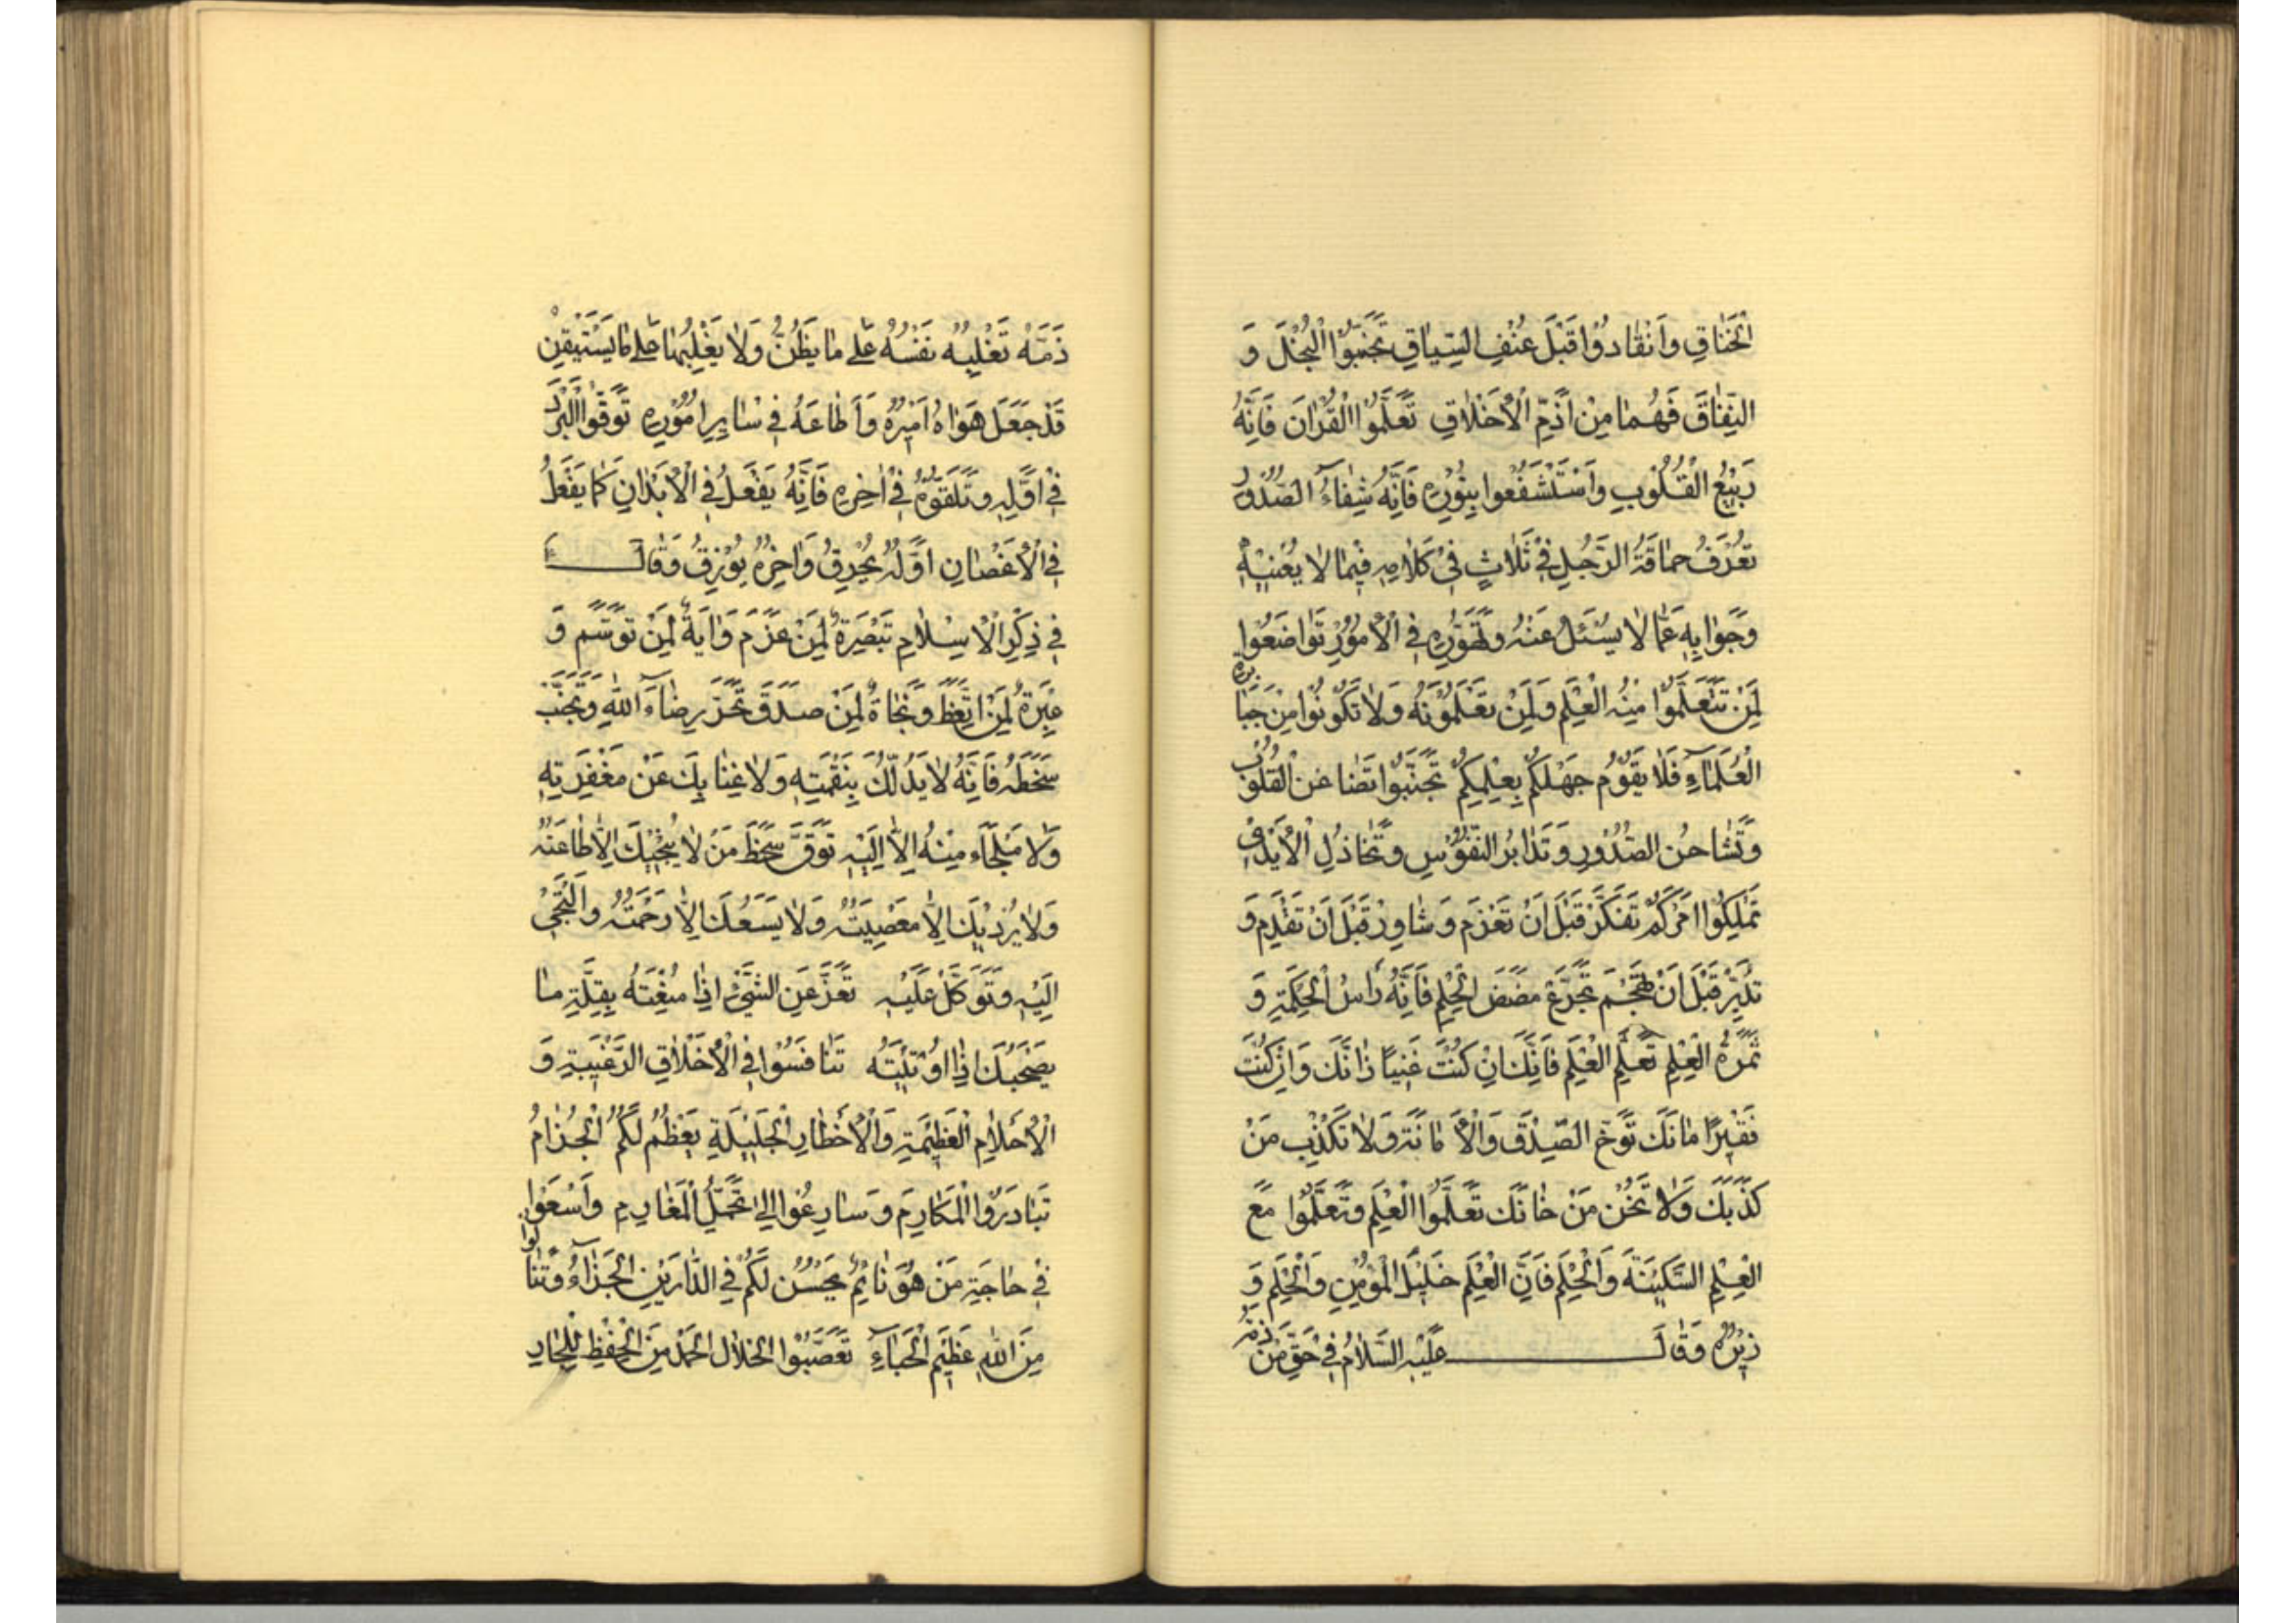 الْخَنَاقِ وَانْقَادُوا قَبْلَ عُنْفِ السِّيَاقِ تَجَنَّبُوا الْبُخْلَ وَ
النِّفَاقَ فَهُمَا مِنْ أَذَمِّ الْأَخْلَاقِ تَعَلَّمُوا الْقُرْآنَ فَإِنَّهُ
رَبِيعُ الْقُلُوبِ وَاسْتَشْفَعُوا بِنُورِهِ فَإِنَّهُ شِفَاءُ الصُّدُورِ
تُعْرَفُ حَمَاقَةُ الرَّجُلِ فِي ثَلَاثٍ فِي كَلَامِهِ فِيمَا لَا يَعْنِيهِ
وَجَوَابِهِ عَمَّا لَا يُسْئَلُ عَنْهُ وَتَهَوُّرِهِ فِي الْأُمُورِ تَوَاضَعُوا
لِمَنْ تَتَعَلَّمُوا مِنْهُ الْعِلْمَ وَلِمَنْ تُعَلِّمُونَهُ وَلَا تَكُونُوا مِنْ جَبَابِرَةِ
الْعُلَمَاءِ فَلَا يَقُومُ جَهْلُكُمْ بِعِلْمِكُمْ تَجَنَّبُوا تَضَاغُنَ الْقُلُوبِ
وَتَشَاحُنَ الصُّدُورِ وَتَدَابُرَ النُّفُوسِ وَتَخَاذُلَ الْأَيْدِي
تَمْلِكُوا أَمْرَكُمْ تَفَكَّرْ قَبْلَ أَنْ تَعْزَمَ وَشَاوِرْ قَبْلَ أَنْ تَقْدِمَ وَ
تَدَبَّرْ قَبْلَ أَنْ تَهْجُمَ تَجَرَّعْ مَضَضَ الْحِلْمِ فَإِنَّهُ رَأْسُ الْحِكْمَةِ وَ
ثَمَرَةُ الْعِلْمِ تَعَلَّمِ الْعِلْمَ فَإِنَّكَ إِنْ كُنْتَ غَنِيًّا زَانَكَ وَإِنْ كُنْتَ
فَقِيرًا مَانَكَ تَوَخَّ الصِّدْقَ وَالْأَمَانَةَ وَلَا تُكَذِّبْ مَنْ
كَذَّبَكَ وَلَا تَخُنْ مَنْ خَانَكَ تَعَلَّمُوا الْعِلْمَ وَتَعَلَّمُوا مَعَ
الْعِلْمِ السَّكِينَةَ وَالْحِلْمَ فَإِنَّ الْعِلْمَ خَلِيلُ الْمُؤْمِنِ وَالْحِلْمَ وَ
زِيرُهُ وَقَالَ عَلَيْهِ السَّلَامُ فِي حَقِّ مَنْ ذَمَّهُ
ذَمَّهُ تَغْلِبُهُ نَفْسُهُ عَلَى مَا يَظُنُّ وَلَا يَغْلِبُهَا عَلَى مَا يَسْتَيْقِنُ
قَدْ جَعَلَ هَوَاهُ أَمِيرَهُ وَأَطَاعَهُ فِي سَايِرِ أُمُورِهِ تَوَقَّوُا الْبَرْدَ
فِي أَوَّلِهِ وَتَلَقَّوْهُ فِي آخِرِهِ فَإِنَّهُ يَفْعَلُ فِي الْأَبْدَانِ كَمَا يَفْعَلُ
فِي الْأَغْصَانِ أَوَّلُهُ يُحْرِقُ وَآخِرُهُ يُورِقُ وَقَالَ
فِي ذِكْرِ الْإِسْلَامِ تَبْصِرَةٌ لِمَنْ عَزَمَ وَآيَةٌ لِمَنْ تَوَسَّمَ وَ
عِبْرَةٌ لِمَنِ اتَّعَظَ وَنَجَاةٌ لِمَنْ صَدَّقَ تَحَرَّ رِضَاءَ اللهِ وَتَجَنَّبْ
سَخَطَهُ فَإِنَّهُ لَا يَدَ لَكَ بِنَقْمَتِهِ وَلَا غِنَا بِكَ عَنْ مَغْفِرَتِهِ
وَلَا مَلْجَاءَ مِنْهُ إِلَّا إِلَيْهِ تَوَقَّ سَخَطَ مَنْ لَا يُنْجِيكَ إِلَّا طَاعَتُهُ
وَلَا يُرْدِيكَ إِلَّا مَعْصِيَتُهُ وَلَا يَسَعُكَ إِلَّا رَحْمَتُهُ وَالْتَجِئْ
إِلَيْهِ وَتَوَكَّلْ عَلَيْهِ تَعَزَّ عَنِ الشَّيْءِ إِذَا مُنِعْتَهُ بِقِلَّةِ مَا
يَصْحَبُكَ إِذَا أُوتِيتَهُ تَنَافَسُوا فِي الْأَخْلَاقِ الرَّغِيبَةِ وَ
الْأَحْلَامِ الْعَظِيمَةِ وَالْأَخْطَارِ الْجَلِيلَةِ يَعْظُمْ لَكُمُ الْجَزَاءُ
تَبَادَرُوا الْمَكَارِمَ وَسَارِعُوا إِلَى تَحَمُّلِ الْمَغَارِمِ وَاسْعَوْا
فِي حَاجَةِ مَنْ هُوَ نَائِمٌ يَحْسُنْ لَكُمْ فِي الدَّارَيْنِ الْجَزَاءُ وَتَنَالُوا
مِنَ اللهِ عَظِيمَ الْحَبَاءِ تَعَصَّبُوا لِخِلَالِ الْحَمْدِ مِنَ الْحِفْظِ لِلْجَارِ